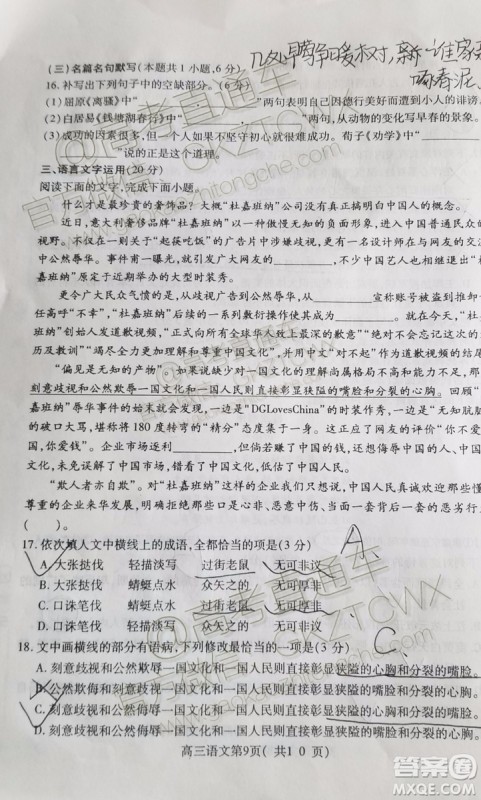 几处早莺争暖树,新
谁家
啄春泥
(三)名篇名句默写(本题共1小题,6分)
16. 补写出下列句子中的空缺部分。(6分)
(1)屈原《离骚》中“ ,”表明自己因德行美好而遭到小人的诽谤
(2)白居易《钱塘湖春行》中“ ,”从动物的变化写早春的景象。
(3)成功的因素很多,但一个人只有坚持不懈,才能有所成就。荀子《劝学》中“
”说的正是这个道理。
三、语言文字运用(20分)
阅读下面的文字,完成下面小题。
什么才是最珍贵的奢侈品?大概“杜嘉班纳”公司没有真正搞明白其中的概念。
近日,意大利奢侈品牌“杜嘉班纳”以一种傲慢无知的负面形象,进入中国普通民众的
视野。不仅因为关于“起筷吃饭”的广告片中涉嫌歧视,更有设计师在与网友的交流
中公然辱华。事件甫一曝光,就引发广大网友的 ,不少中国艺人也相
班纳”原定于近期举办的大型时装秀。
更令广大民众气愤的是,从歧视广告到公然辱华,从 ,宣称账号被盗到推出
“杜嘉班纳”后续的一系列敷衍操作使其成为 。“杜嘉班纳
创始人发道歉视频,“正式向所有全球华人致上最深的歉意”“绝对不会忘记这次的
历及教训”“定当更加理解和尊重中国文化”,并用中文说“对不起”作为道歉视频的结尾
“偏见是无知的产物”。如果对中国文化的不理解尚属格局不高和能力不足,
刻意歧视和公然欺辱一国文化和一国人民则直接彰显狭隘的嘴脸和分裂的心胸。回顾“
嘉班纳”辱华事件的始末,一边是主题为“DGLovesChina”的时装秀,一边是“无知肮脏
的破口大骂,堪称将180度转弯的“精分”态度集于一身。这正应了网友的
国,你爱钱”。企业市场逐利 ,但若一边想着赚中国的钱,还想
在中国发展壮大,一边却诋毁中国文化、辱骂中国人民。
“欺人者亦自欺”。中国人民虽然大度,但
尊重的企业,若未来要在中国走得更远,当面一套背后一套
( )。
17. 依次填入文中横线上的成语,全都恰当的项是(3分)
A
A. 大张挞伐 轻描淡写 过街老鼠 无可非议
B. 大张挞伐 蜻蜓点水 众矢之的 无可厚非
C. 口诛笔伐 蜻蜓点水 过街老鼠 无可非议
D. 口诛笔伐 轻描淡写 众矢之的 无可厚非
18. 文中画横线的部分有语病,下列修改最恰当的一项是(3分)
C
A. 刻意歧视和公然欺辱一国文化和一国人民则直接彰显狭隘的心胸和分裂的嘴脸。
B. 公然欺侮和刻意歧视一国文化和一国人民则直接彰显狭隘的嘴脸和分裂的心胸。
C. 刻意歧视和公然侮辱一国文化和一国人民则直接彰显狭隘的心胸和分裂的嘴脸。
D. 刻意歧视和公然侮辱一国文化和一国人民则直接彰显狭隘的嘴脸和分裂的心胸。
高三语文第9页( 共10页)
@高考直通车
GKZTCWX
答案圈
MXQE.COM